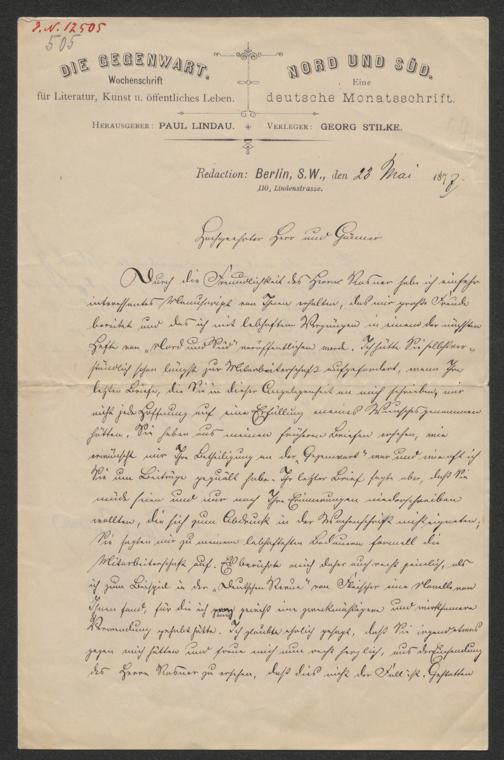 J. N. 12505
505
DIE GEGENWART.
Wochenschrift
für Literatur, Kunst u. öffentliches Leben.
NORD UND SÜD.
Eine
deutsche Monatsschrift.
HERAUSGEBER: PAUL LINDAU. VERLEGER: GEORG STILKE.
Redaction: Berlin, S.W., den 28 Mai 187
110, Lindenstrasse.
Hochgeehrter Herr und Gönner
Durch die Freundlichkeit des Herrn Rosner habe ich ein sehr
interessantes Manuscript von Ihnen erhalten, das mir große Freude
bereitet und das ich mit lebhaftem Vergnügen in einem der nächsten
Hefte von „Nord und Süd" veröffentlichen werde. Ich hätte Sie selbstver-
ständlich schon längst zur Mitarbeiterschaft aufgefordert, wenn Ihre
letzten Briefe, die Sie in dieser Angelegenheit an mich schrieben, mir
nicht jede Hoffnung auf eine Erfüllung meines Wunsches genommen
hätten. Sie haben aus meinen früheren Briefen ersehen, wie
erwünscht mir Ihre Betheiligung an der „Gegenwart" war und wie oft ich
Sie um Beiträge gequält habe. Ihr letzter Brief sagte aber, daß Sie
müde seien und nur noch Ihre Erinnerungen niederschreiben
wollten, die sich zum Abdruck in der Wochenschrift nicht eigneten;
Sie sagten mir zu meinem lebhaftesten Bedauern formell die
Mitarbeiterschaft auf. Es berührte mich daher auch recht peinlich, als
ich zum Beispiel in der „Deutschen Revue" von Fleischer eine Novelle von
Ihnen fand, für die ich gewiß eine zweckmäßigere und wirksamere
Verwendung gehabt hätte. Ich glaubte ehrlich gesagt, daß Sie irgend etwas
gegen mich hätten und freue mich nun recht herzlich, aus der Einsendung
des Herrn Rosner zu ersehen, daß dies nicht der Fall ist. Gestatten